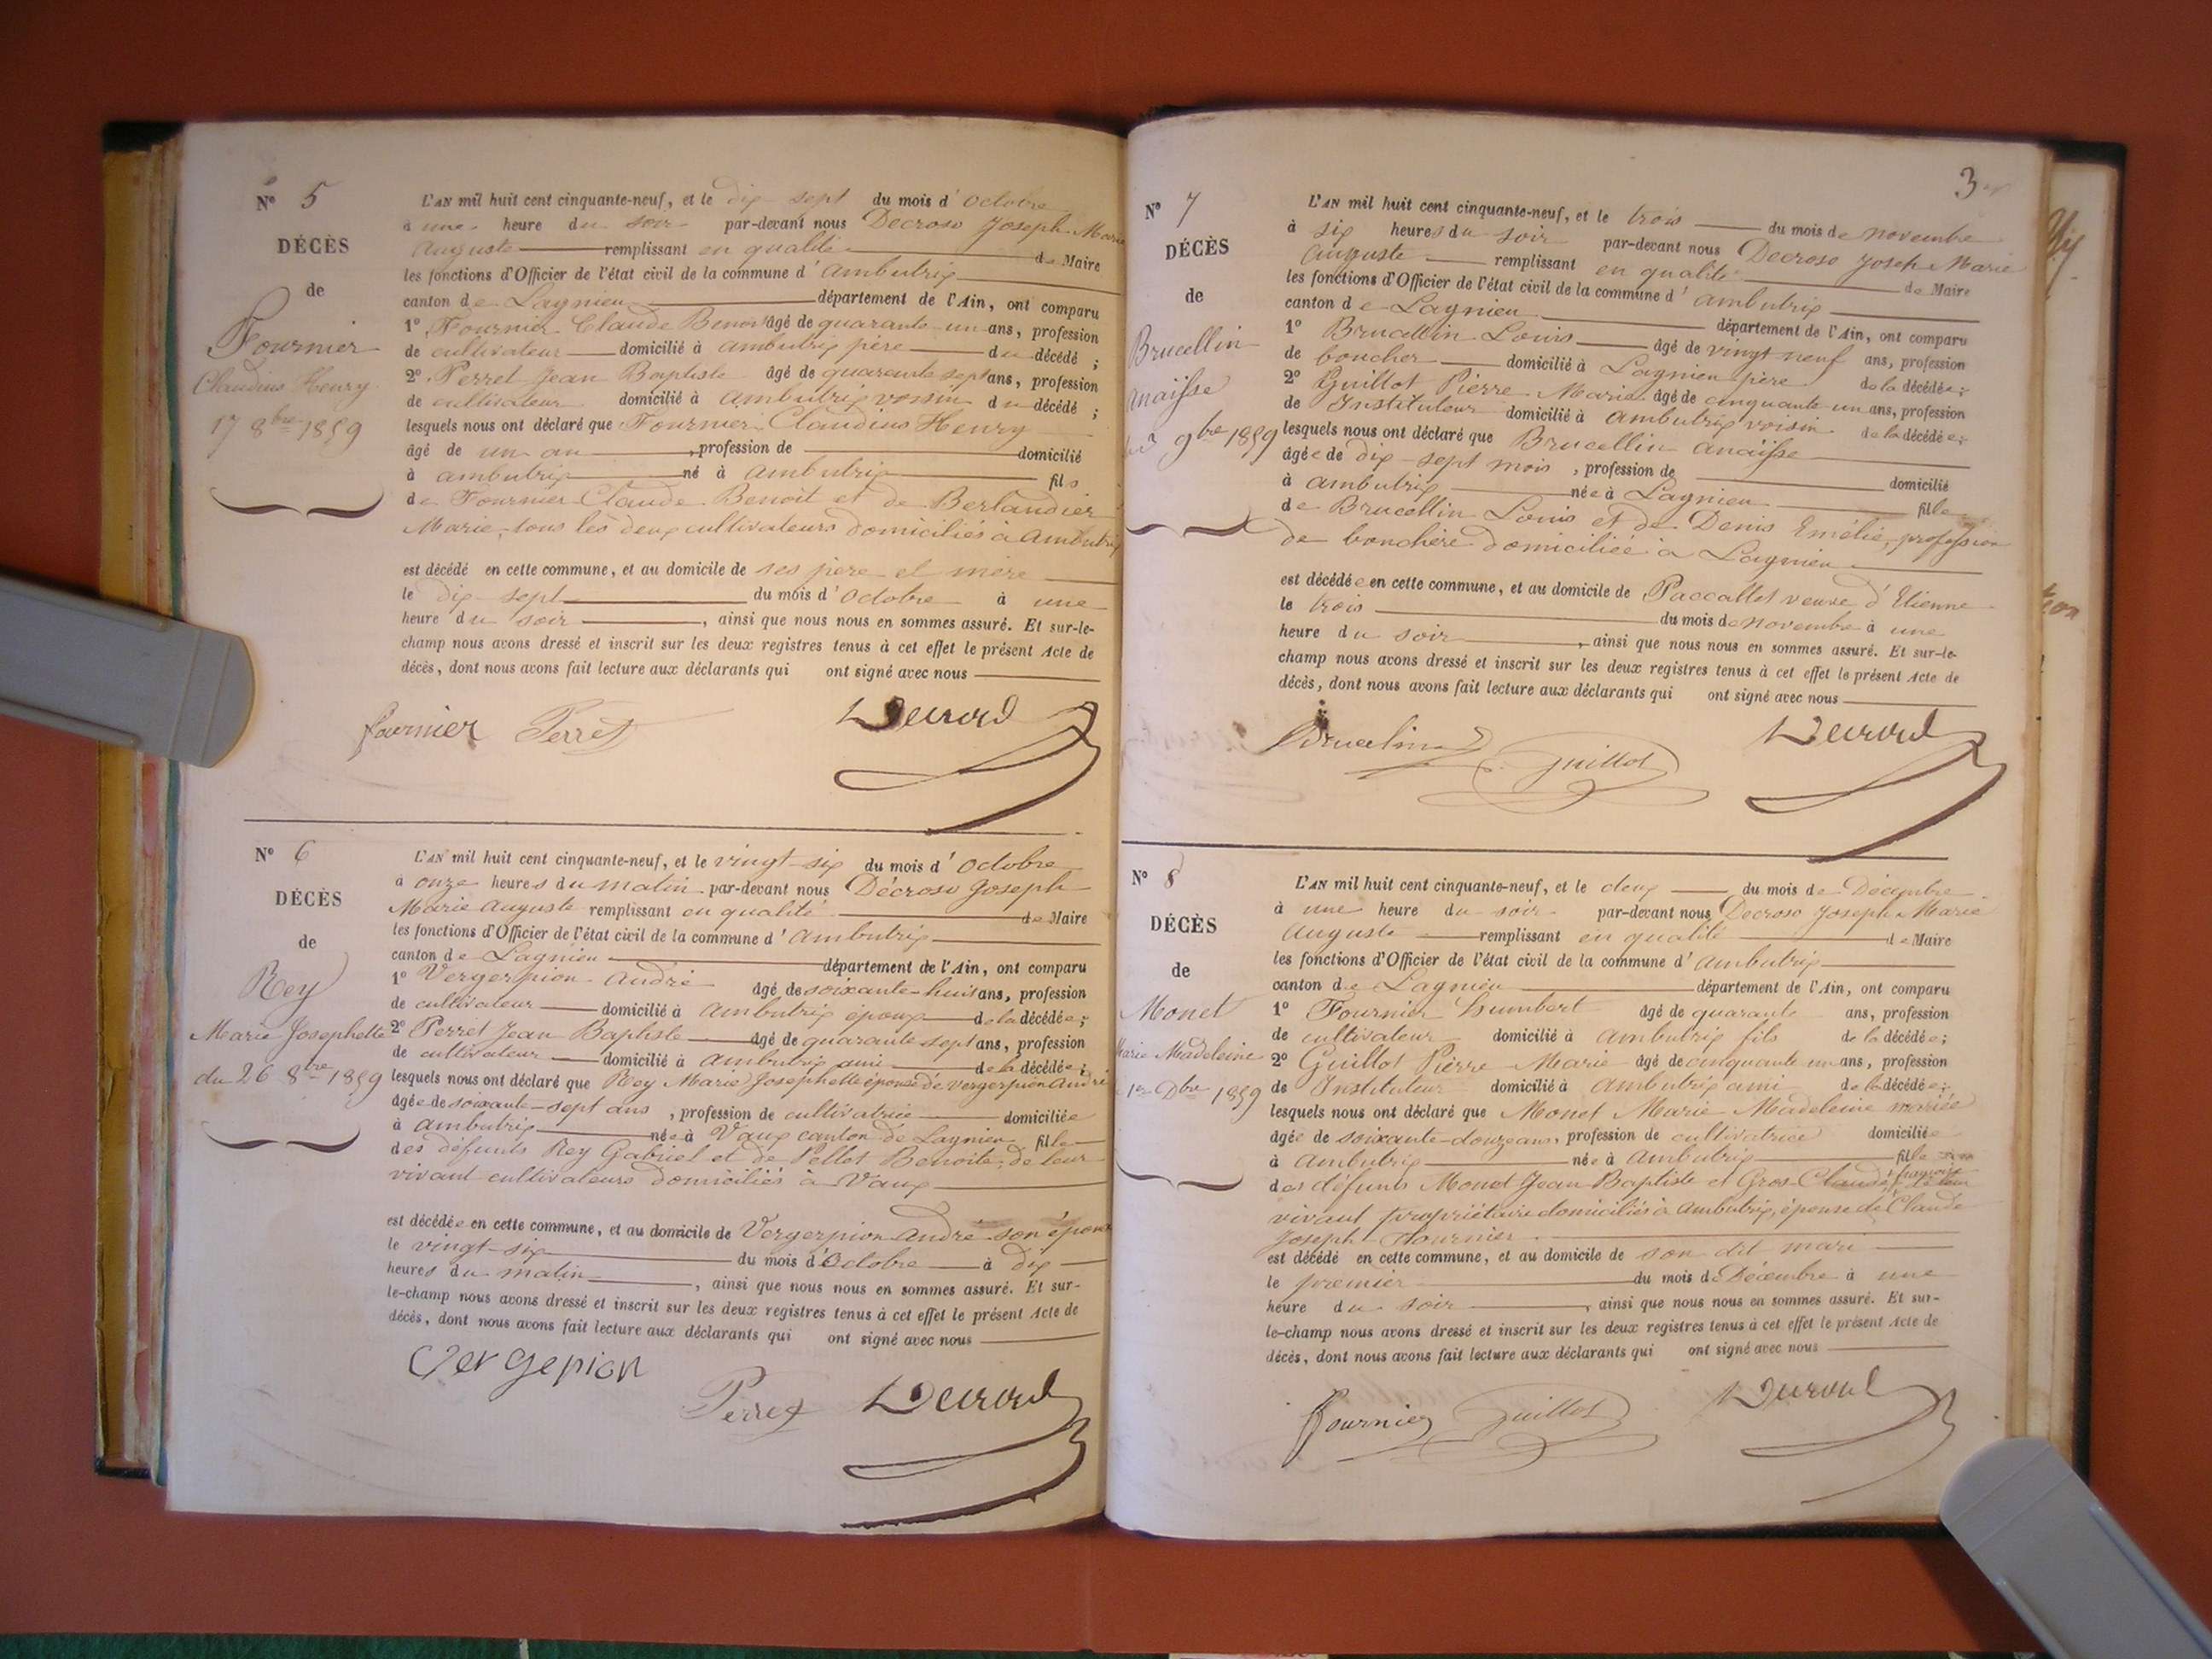 N° 5
DÉCÈS
de
Fournier
Claudius Henry
17 8bre 1859
L'AN mil huit cent cinquante-neuf, et le dix sept du mois d'Octobre
à une heure du soir par-devant nous Decroso Joseph Marie
Auguste remplissant en qualité de Maire
les fonctions d'Officier de l'état civil de la commune d'ambutrix
canton de Lagnieu département de l'Ain, ont comparu
1° Fournier Claude Benoit âgé de quarante un ans, profession
de cultivateur domicilié à ambutrix père du décédé ;
2° Perret Jean Baptiste âgé de quarante sept ans, profession
de cultivateur domicilié à Ambutrix voisin du décédé ;
lesquels nous ont déclaré que Fournier Claudius Henry
âgé de un an , profession de domicilié
à ambutrix né à ambutrix fils
de Fournier Claude Benoit et de Berlandier
Marie, tous les deux cultivateurs domiciliés à Ambutrix
est décédé en cette commune, et au domicile de ses père et mère
le dix sept du mois d'Octobre à une
heure du soir , ainsi que nous nous en sommes assuré. Et sur-le-
champ nous avons dressé et inscrit sur les deux registres tenus à cet effet le présent Acte de
décès, dont nous avons fait lecture aux déclarants qui ont signé avec nous
fournier Perret Decroso
N° 6
DÉCÈS
de
Rey
Marie Josephette
du 26 8bre 1859
L'AN mil huit cent cinquante-neuf, et le vingt-six du mois d'Octobre
à onze heures du matin par-devant nous Décroso Joseph
Marie Auguste remplissant en qualité de Maire
les fonctions d'Officier de l'état civil de la commune d'ambutrix
canton de Lagnieu département de l'Ain, ont comparu
1° Vergerpion André âgé de soixante-huit ans, profession
de cultivateur domicilié à Ambutrix époux de la décédée ;
2° Perret Jean Baptiste âgé de quarante sept ans, profession
de cultivateur domicilié à Ambutrix ami de la décédée ;
lesquels nous ont déclaré que Rey Marie Josephette épouse de vergerpion André
âgée de soixante-sept ans , profession de cultivatrice domiciliée
à ambutrix née à Vaux canton de Lagnieu fille
des défunts Rey Gabriel et de Pellet Benoite, de leur
vivant cultivateurs domiciliés à Vaux
est décédée en cette commune, et au domicile de Vergerpion André son époux
le vingt-six du mois d'Octobre à dix
heures du matin , ainsi que nous nous en sommes assuré. Et sur-
le-champ nous avons dressé et inscrit sur les deux registres tenus à cet effet le présent Acte de
décès, dont nous avons fait lecture aux déclarants qui ont signé avec nous
Vergepion
Perret Decroso
3
N° 7
DÉCÈS
de
Brucellin
Anaïsse
9bre 1859
L'AN mil huit cent cinquante-neuf, et le trois du mois de novembre
à six heures du soir par-devant nous Decroso Joseph Marie
Auguste remplissant en qualité de Maire
les fonctions d'Officier de l'état civil de la commune d'ambutrix
canton de Lagnieu département de l'Ain, ont comparu
1° Brucellin Louis âgé de vingt neuf ans, profession
de boucher domicilié à Lagnieu père de la décédée ;
2° Guillot Pierre Marie âgé de cinquante un ans, profession
de Instituteur domicilié à Ambutrix voisin de la décédée ;
lesquels nous ont déclaré que Brucellin Anaïsse
âgée de dix-sept mois , profession de domicilié
à ambutrix née à Lagnieu fille
de Brucellin Louis et de Denis Emélie, profession
de bouchère domiciliée à Lagnieu
est décédée en cette commune, et au domicile de Paccallet veuve d'Etienne
le trois du mois de novembre à une
heure du soir , ainsi que nous nous en sommes assuré. Et sur-le-
champ nous avons dressé et inscrit sur les deux registres tenus à cet effet le présent Acte de
décès, dont nous avons fait lecture aux déclarants qui ont signé avec nous
Brucelin Guillot Decroso
N° 8
DÉCÈS
de
Monet
Marie Madeleine
1er Dbre 1859
L'AN mil huit cent cinquante-neuf, et le deux du mois de Décembre
à une heure du soir par-devant nous Decroso Joseph Marie
Auguste remplissant en qualité de Maire
les fonctions d'Officier de l'état civil de la commune d'ambutrix
canton de Lagnieu département de l'Ain, ont comparu
1° Fournier humbert âgé de quarante ans, profession
de cultivateur domicilié à ambutrix fils de la décédée ;
2° Guillot Pierre Marie âgé de cinquante un ans, profession
de Instituteur domicilié à Ambutrix ami de la décédée ;
lesquels nous ont déclaré que Monet Marie Madeleine mariée
âgée de soixante-douze ans, profession de cultivatrice domiciliée
à Ambutrix née à Ambutrix fille
des défunts Monet Jean Baptiste et Gros Claudé
vivant propriétaire domiciliés à Ambutrix, épouse de Claude
Joseph Fournier
est décédé en cette commune, et au domicile de son dit mari
le premier du mois de Décembre à une
heure du soir , ainsi que nous nous en sommes assuré. Et sur-
le-champ nous avons dressé et inscrit sur les deux registres tenus à cet effet le présent Acte de
décès, dont nous avons fait lecture aux déclarants qui ont signé avec nous
fournier Guillot Decroso